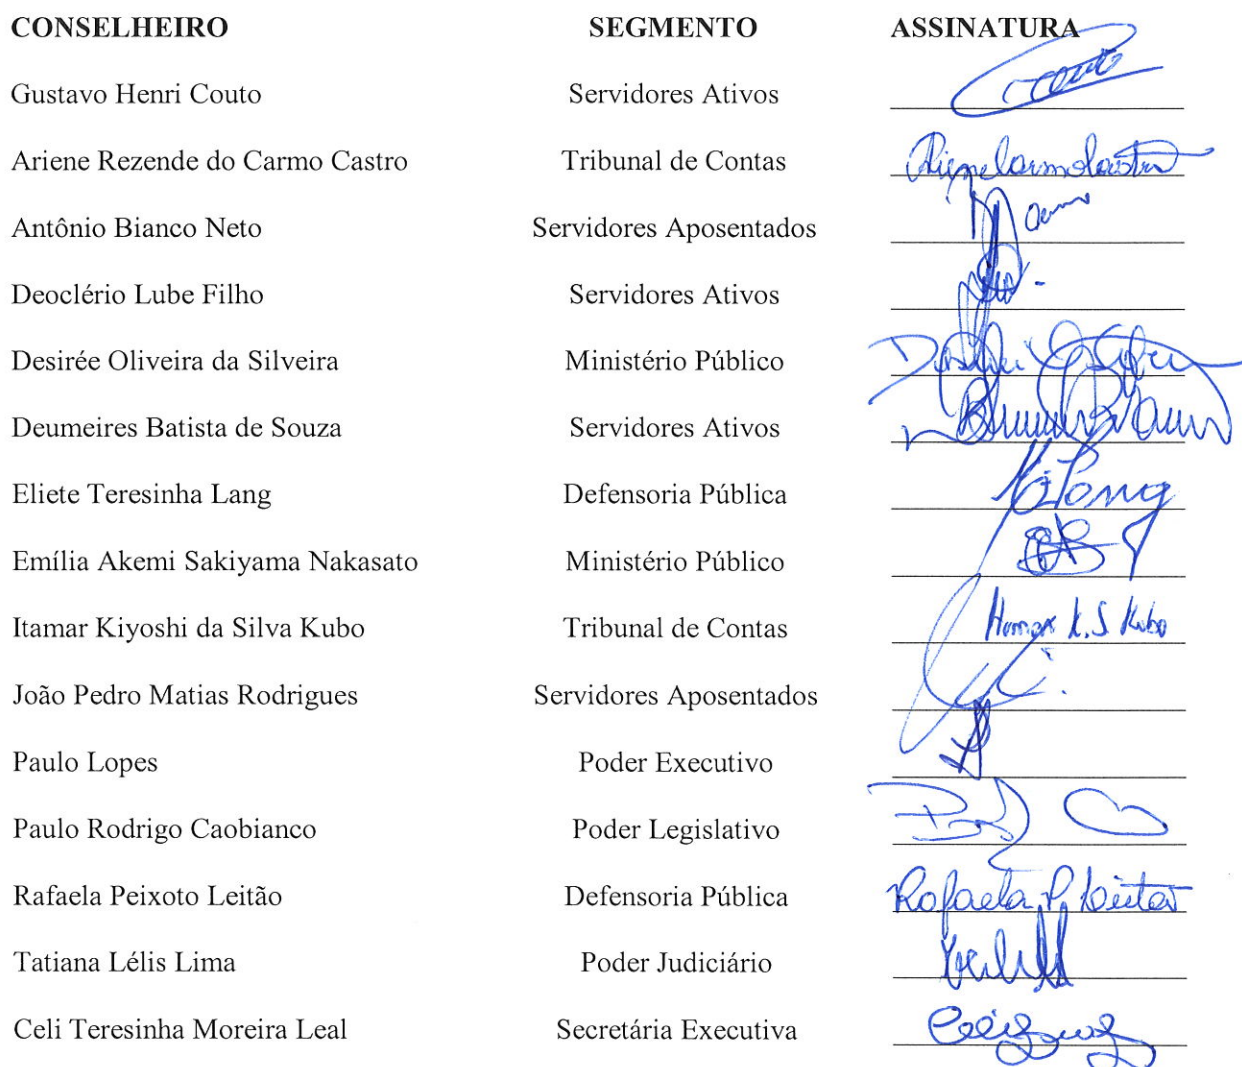 CONSELHEIRO SEGMENTO ASSINATURA
Gustavo Henri Couto Servidores Ativos Couto
Ariene Rezende do Carmo Castro Tribunal de Contas
Antônio Bianco Neto Servidores Aposentados
Deoclério Lube Filho Servidores Ativos
Desirée Oliveira da Silveira Ministério Público
Deumeires Batista de Souza Servidores Ativos
Eliete Teresinha Lang Defensoria Pública Lang
Emília Akemi Sakiyama Nakasato Ministério Público
Itamar Kiyoshi da Silva Kubo Tribunal de Contas Itamar K. S Kubo
João Pedro Matias Rodrigues Servidores Aposentados
Paulo Lopes Poder Executivo
Paulo Rodrigo Caobianco Poder Legislativo
Rafaela Peixoto Leitão Defensoria Pública Rafaela P. Leitão
Tatiana Lélis Lima Poder Judiciário
Celi Teresinha Moreira Leal Secretária Executiva